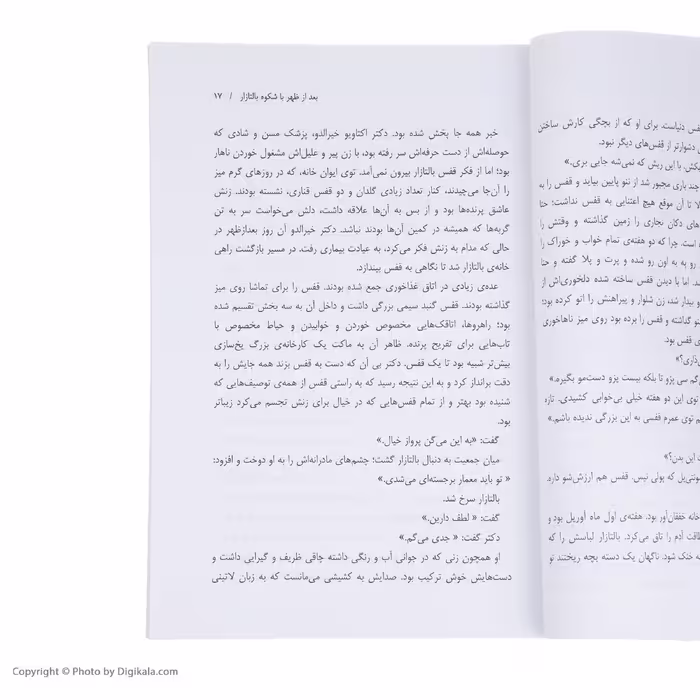 قفس دنیاست. برای او که از بچگی کارش ساختن
دشوارتر از قفس‌های دیگر نبود.
با این ریش که نمی‌شه جایی بری.»
چند باری مجبور شد از ننو پایین بیاید و قفس را به
تا آن موقع هیچ اعتنایی به قفس نداشت؛ حتا
دکان نجاری را زمین گذاشته و وقتش را
است. چرا که دو هفته‌ی تمام خواب و خوراک را
رو به این رو شده و پرت و پلا گفته و حتا
اما با دیدن قفس ساخته شده دلخوری‌اش از
بیدار شد، زن شلوار و پیراهنش را اتو کرده بود؛
گذاشته و قفس را برده بود روی میز ناهاخوری
قفس بود.
سی پزو تا بلکه بیست پزو دست‌مو بگیره.»
توی این دو هفته خیلی بی‌خوابی کشیدی. تازه
توی عمرم قفسی به این بزرگی ندیده باشم.»
این بدن؟»
که پولی نیس. قفس هم ارزش‌شو داره.
خفقان‌آور بود. هفته‌ی اول ماه آوریل بود و
آدم را تاق می‌کرد. بالتازار لباسش را که
خنک شود. ناگهان یک دسته بچه ریختند تو
بعد از ظهر با شکوه بالتازار / ۱۷
خبر همه جا پخش شده بود. دکتر اکتاویو خیرالدو، پزشک مسن و شادی که
حوصله‌اش از دست حرفه‌اش سر رفته بود، با زن پیر و علیل‌اش مشغول خوردن ناهار
بود؛ اما از فکر قفس بالتازار بیرون نمی‌آمد. توی ایوان خانه، که در روزهای گرم میز
را آن‌جا می‌چیدند، کنار تعداد زیادی گلدان و دو قفس قناری، نشسته بودند. زنش
عاشق پرنده‌ها بود و از بس به آن‌ها علاقه داشت، دلش می‌خواست سر به تن
گربه‌ها که همیشه در کمین آن‌ها بودند نباشد. دکتر خیرالدو آن روز بعدازظهر در
حالی که مدام به زنش فکر می‌کرد، به عیادت بیماری رفت. در مسیر بازگشت راهی
خانه‌ی بالتازار شد تا نگاهی به قفس بیندازد.
عده‌ی زیادی در اتاق غذاخوری جمع شده بودند. قفس را برای تماشا روی میز
گذاشته بودند. قفس گنبد سیمی بزرگی داشت و داخل آن به سه بخش تقسیم شده
بود؛ راهروها، اتاقک‌هایی مخصوص خوردن و خوابیدن و حیاط مخصوص با
تاب‌هایی برای تفریح پرنده. ظاهر آن به ماکت یک کارخانه‌ی بزرگ یخ‌سازی
بیش‌تر شبیه بود تا یک قفس. دکتر بی آن که دست به قفس بزند همه جایش را به
دقت برانداز کرد و به این نتیجه رسید که به راستی قفس از همه‌ی توصیف‌هایی که
شنیده بود بهتر و از تمام قفس‌هایی که در خیال برای زنش تجسم می‌کرد زیباتر
بود.
گفت: «به این می‌گن پرواز خیال.»
میان جمعیت به دنبال بالتازار گشت؛ چشم‌های مادرانه‌اش را به او دوخت و افزود:
« تو باید معمار برجسته‌ای می‌شدی.»
بالتازار سرخ شد.
گفت: « لطف دارین.»
دکتر گفت: « جدی می‌گم.»
او همچون زنی که در جوانی آب و رنگی داشته چاقی ظریف و گیرایی داشت و
دست‌هایش خوش ترکیب بود. صدایش به کشیشی می‌مانست که به زبان لاتینی
Copyright © Photo by Digikala.com